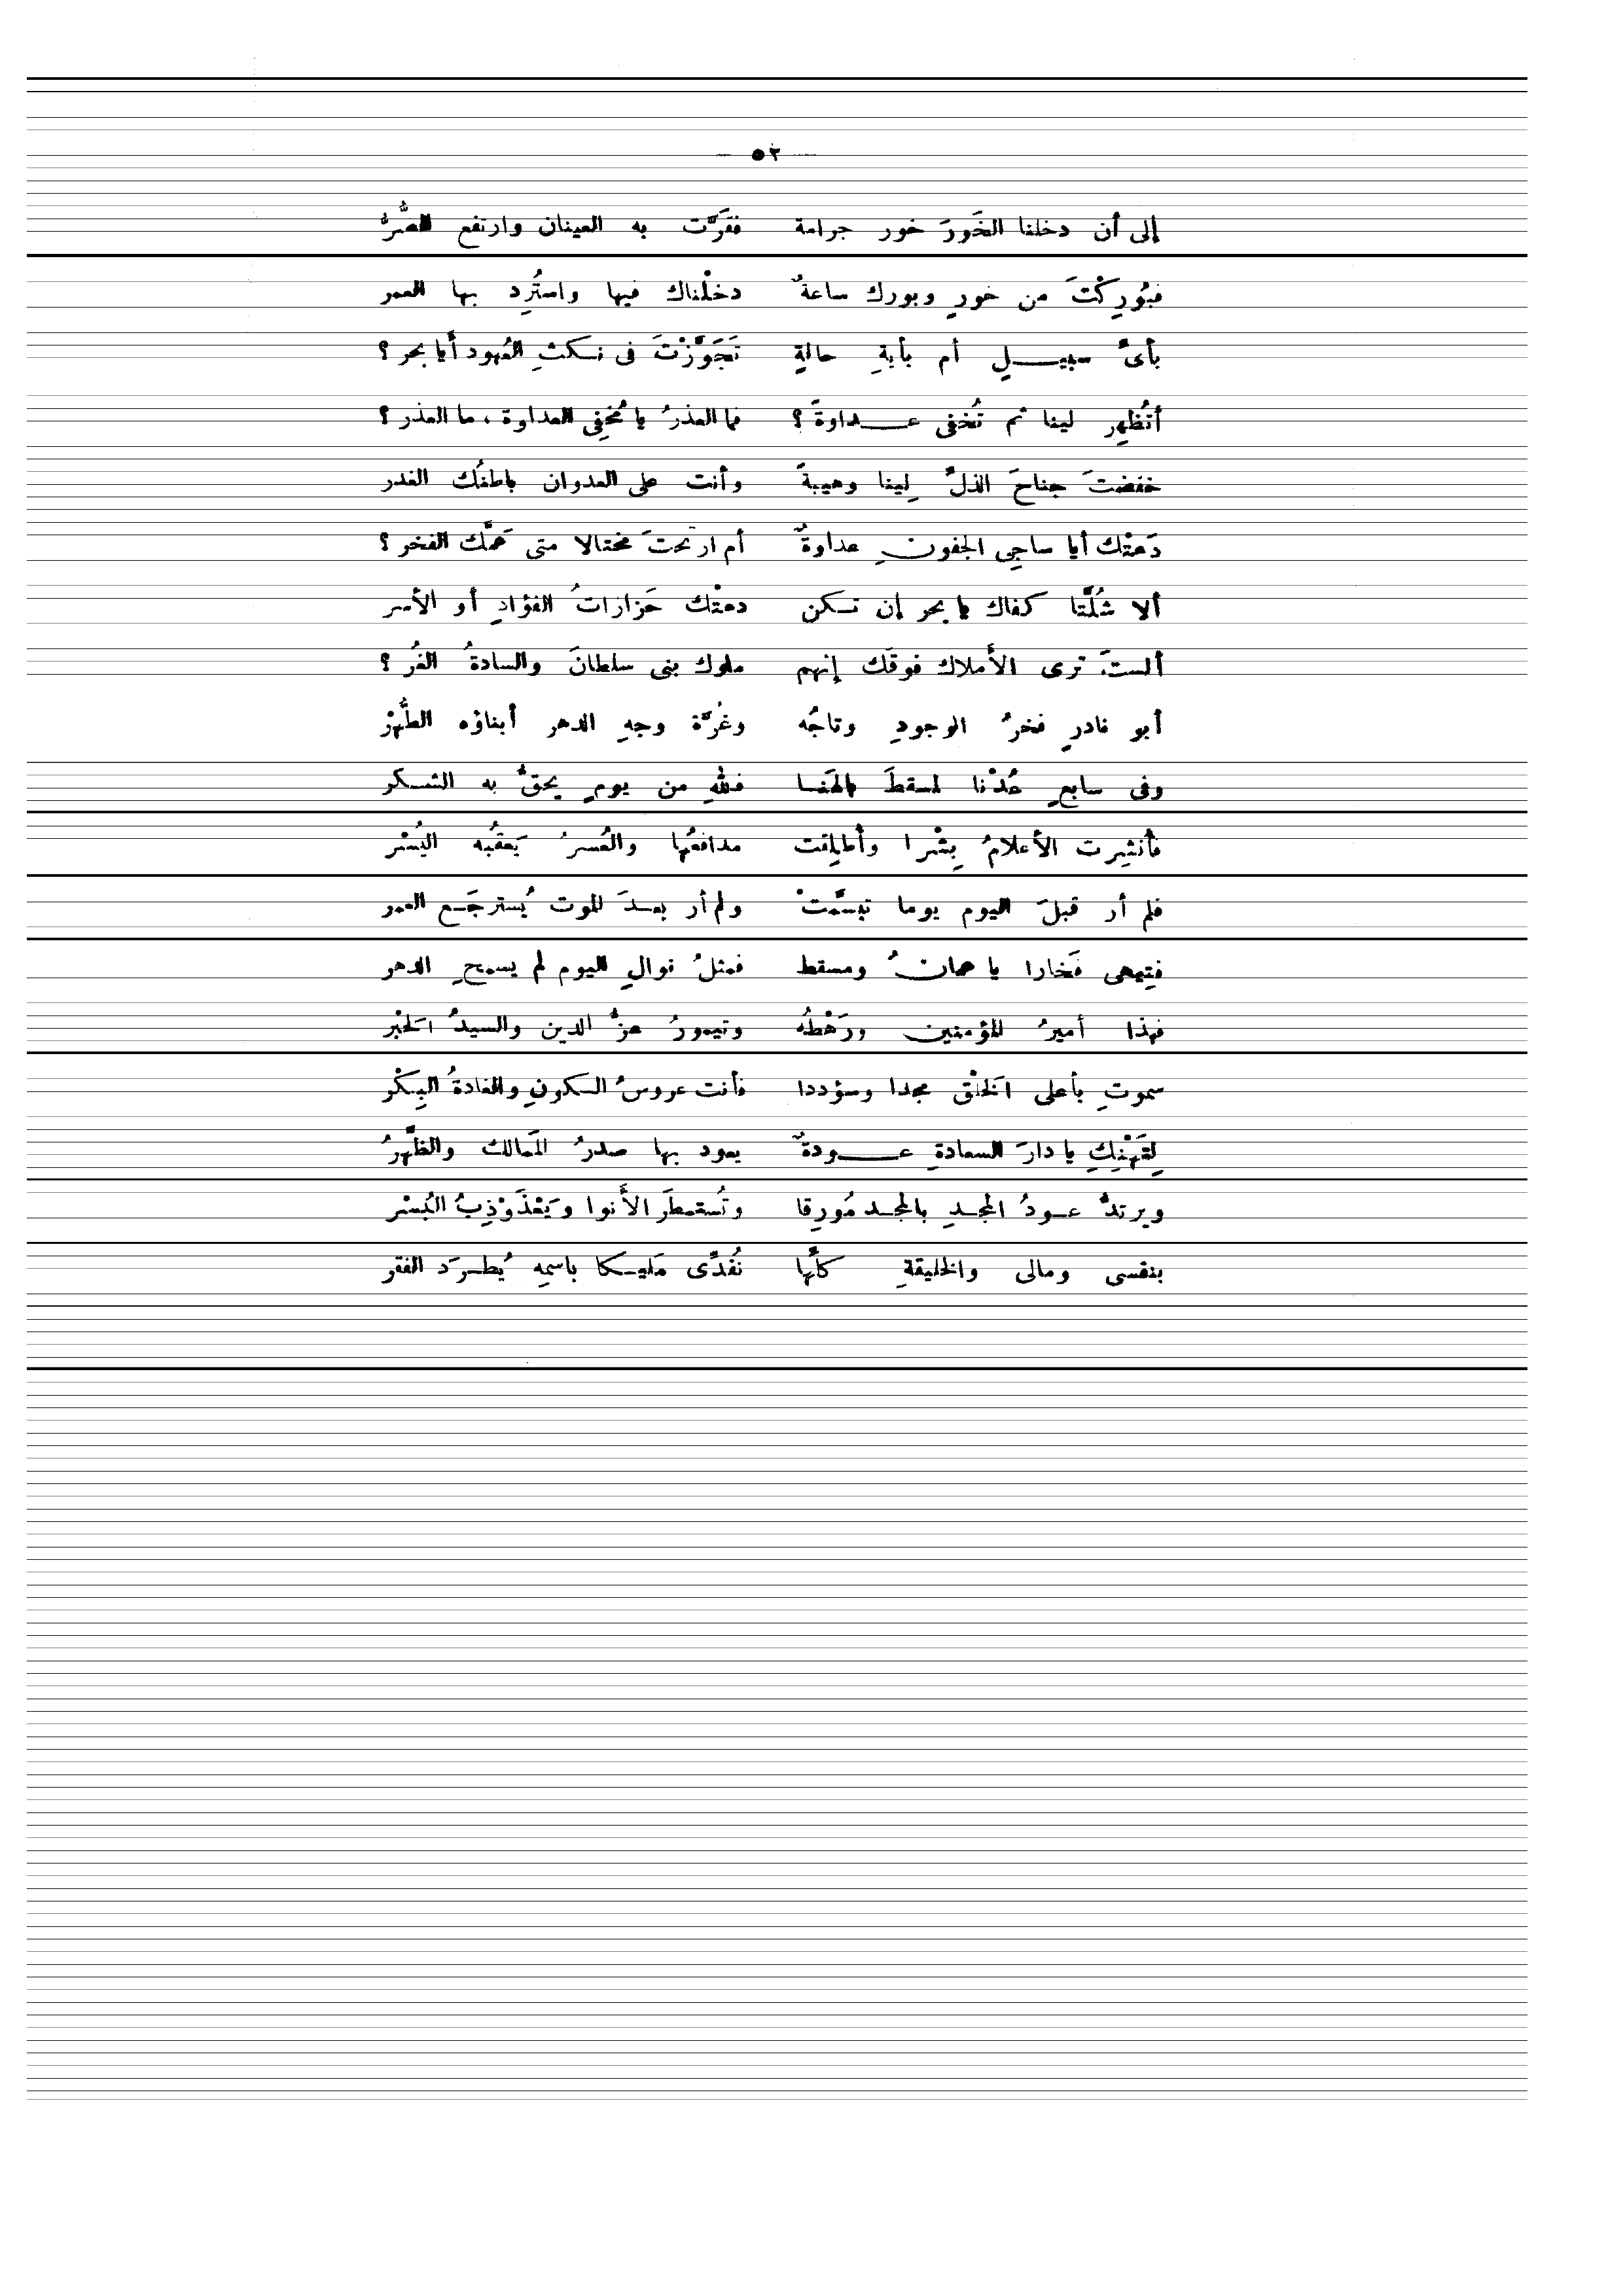 — ٥٢ —
إلى أن دخلنا الخَورَ خور جرامة فقرَّت به العينان وارتفع الضُّرُّ
فبُورِكْتَ من خورٍ وبورك ساعةٌ دخلْناك فيها واستُرِد بها العمر
بأىِّ سبيـــلٍ أم بأيةِ حالةٍ تَجَوَّزْتَ فى نكثِ العُهود أيا بحر ؟
أتُظهِر لينا ثم تُخفى عـــداوةً ؟ فما العذرُ يا مُخفِى العداوة ، ما العذر ؟
خفضتَ جناحَ الذلِّ لِينا وهيبةً وأنت على العدوان باطنُك الغدر
دَعتْك أيا ساجِى الجفونِ عداوةٌ أم ارتحتَ مختالا متى هَمَّك الفخر ؟
ألا شُلَّتا كفاك يا بحر إن تكن دعتْك حَزازاتُ الفؤادِ أو الأسر
ألستَ ترى الأَملاك فوقَك إنهم ملوك بنى سلطانَ والسادةُ الغُر ؟
أبو نادرٍ فخرُ الوجودِ وتاجُه وغُرَّة وجهِ الدهر أبناؤه الطُّهْرُ
وفى سابعٍ عُدْنا لمسقطَ بالهَنـا فللهِ من يومٍ يحقُّ به الشكر
فأنشِرت الأعلامُ بِشْرا وأطلِقت مدافعُها والعُسرُ يَعقبُه اليُسْر
فلم أر قبلَ اليوم يوما تبسَّمتْ ولم أر بعدَ الموت يُسترجَع العمر
فتِيهى فَخارا يا عمانُ ومسقط فمثلُ نوالِ اليوم لم يسمحِ الدهر
فهذا أميرُ المؤمنين ورَهْطُه وتيمورُ عزُّ الدين والسيدُ الحَبْر
سموتِ بأعلى الخَلْق مجدا وسؤددا فأنت عروسُ الكونِ والغادةُ البِكْر
لِتَهْنِكِ يا دارَ السعادةِ عـــودةٌ يعود بها صدرُ المَمالك والظَّهرُ
ويرتدُّ عـودُ المجـدِ بالمجـد مُورِقا وتُستمطَر الأَنوا ويَعْذَوْذِبُ البُسْر
بنفسى ومالى والخليقةِ كلِّها نُفدِّى مَليـكا باسمِه يُطـرَد الفقر